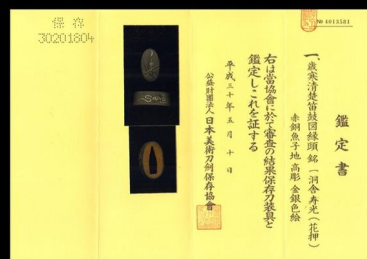 保存
30201804
№ 4013581
鑑定書
一、歳寒清楚笛鼓図縁頭 銘 一洞舎寿光(花押)
赤銅魚子地 高彫 金銀色絵
右は當協會に於て審査の結果保存刀装具と
鑑定しこれを証する
平成三十年五月十日
公益財團法人日本美術刀剣保存協會